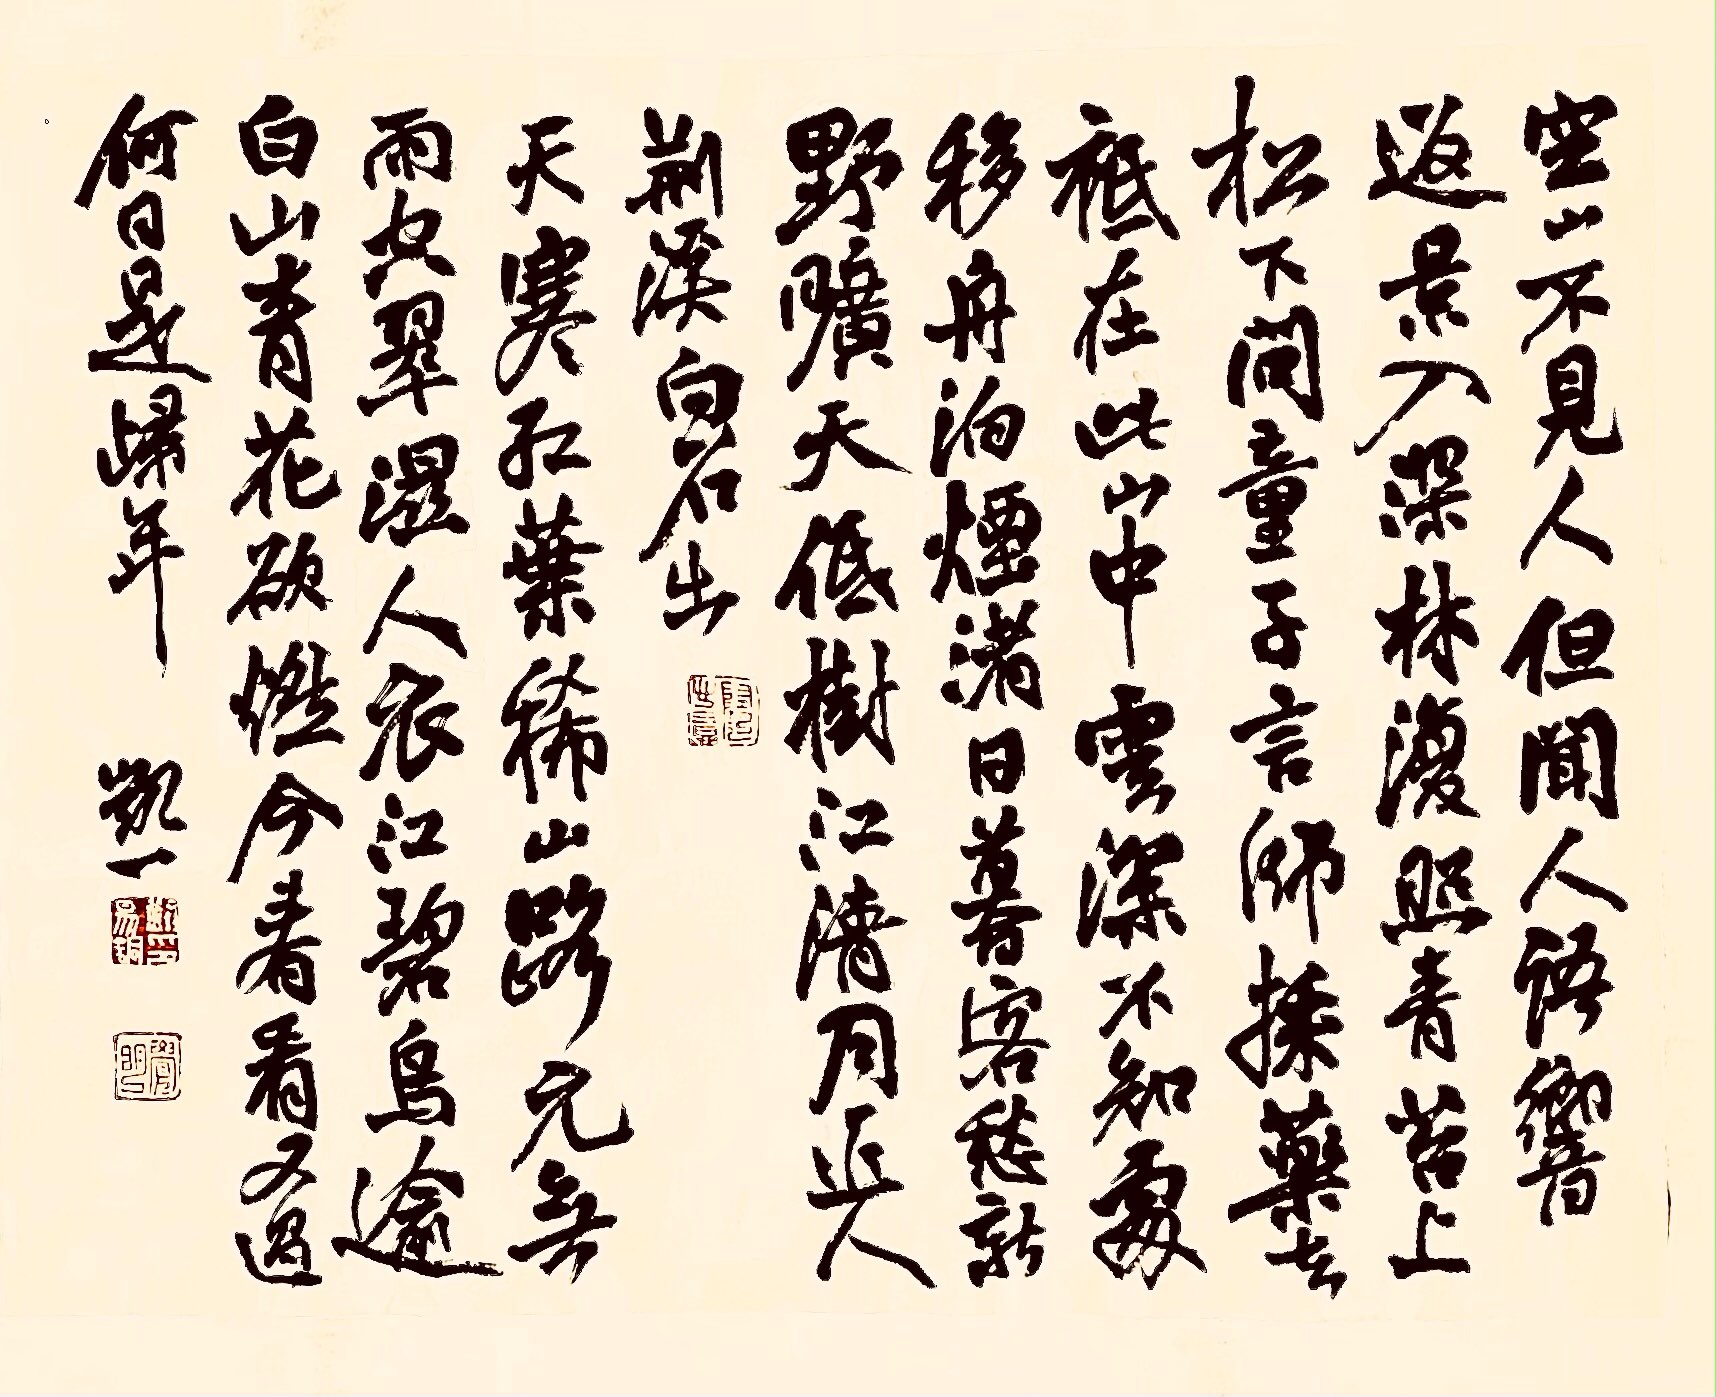 空山不見人但聞人語響
返景入深林復照青苔上
松下問童子言師採藥去
祇在此山中雲深不知處
移舟泊煙渚日暮客愁新
野曠天低樹江清月近人
荆溪白石出
天寒紅葉稀山路元無
雨空翠濕人衣江碧鳥逾
白山青花欲燃今春看又過
何日是歸年 凱一